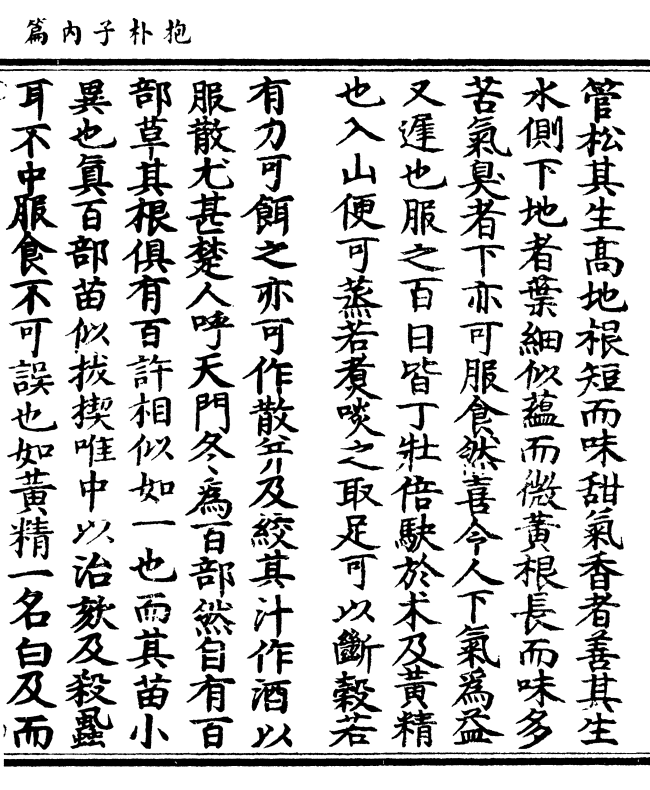 抱朴子內篇
管松其生高地根短而味甜氣香者善其生
水側下地者葉細似蘊而微黃根長而味多
苦氣臭者下亦可服食然喜令人下氣為益
又遲也服之百日皆丁壯倍駃於术及黃精
也入山便可蒸若煑啖之取足可以斷穀若
有力可餌之亦可作散并及絞其汁作酒以
服散尤甚楚人呼天門冬為百部然自有百
部草其根俱有百許相似如一也而其苗小
異也真百部苗似拔揳唯中以治欬及殺蟲
耳不中服食不可誤也如黃精一名白及而